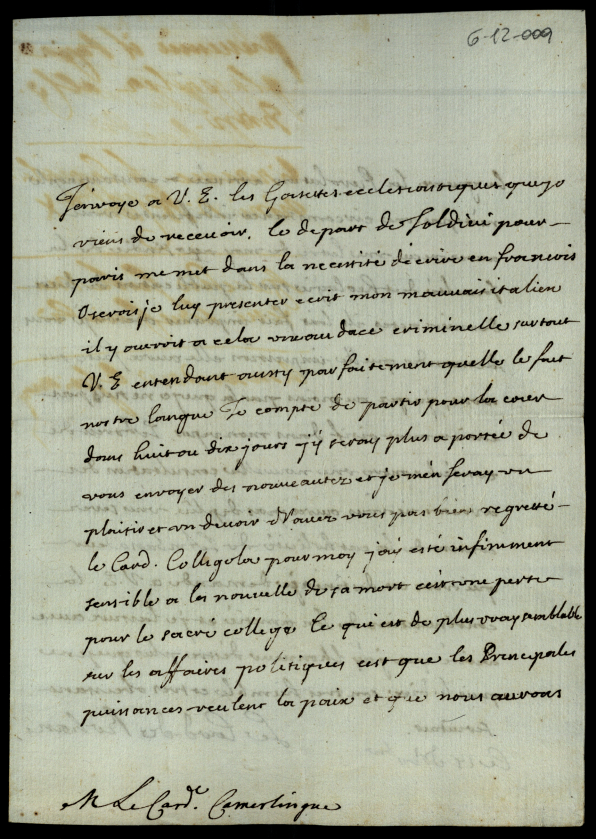 6-12-009
J'envoye a V. E. les Gasettes ecclesiastiques que je
viens de recevoir. le depart de Soldini pour
paris me met dans la necessité décrire en francois
Oserois je luy presenter ecrit mon mauvais italien
il y auroit a cela une audace criminelle surtout
V. E entendant aussy parfaitement quelle le fait
nostre langue Je compte de partir pour la cour
dans huit ou dix jours j'y seray plus a portée de
vous envoyer des nouveautez et je m'en feray un
plaisir et un devoir N'avez vous pas bien regretté
le Card. Colligola pour moy j'ay esté infiniment
sensible a la nouvelle de sa mort cest une perte
pour le sacré college Ce qui est de plus vray semblable
sur les affaires politiques cest que les Principales
puissances veulent la paix et que nous aurons
M Le Card.le Camerlingue